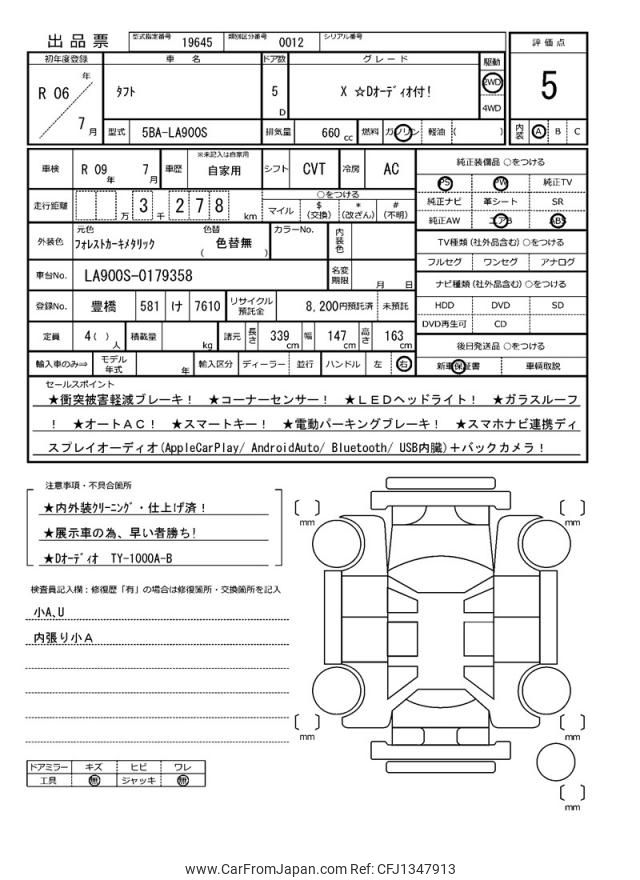 出品票 型式指定番号 19645 類別区分番号 0012 シリアル番号
評価点
5
内装 A B C
初年度登録 車名 ドア数 グレード 駆動
R 06 年 7 月
タフト
5 D
X ☆Dオーディオ付!
2WD
4WD
型式 5BA-LA900S 排気量 660 cc 燃料 ガソリン 軽油 ( )
車検 R 09 年 7 月 車歴 ※未記入は自家用 自家用 シフト CVT 冷房 AC
走行距離 万 3 千 2 7 8 km
○をつける
マイル $(交換) *(改ざん) #(不明)
外装色 元色 フォレストカーキメタリック 色替 ( 色替無 ) カラーNo. 内装色
車台No. LA900S-0179358 名変期限 月 日
登録No. 豊橋 581 け 7610 リサイクル預託金 8,200円預託済 未預託
定員 4( ) 人 積載量 kg 諸元 長さ 339 cm 幅 147 cm 高さ 163 cm
輸入車のみ⇨ モデル年式 年 輸入区分 ディーラー 並行 ハンドル 左 右
純正装備品 ○をつける
PS PW 純正TV
純正ナビ 革シート SR
純正AW エアB ABS
TV種類(社外品含む)○をつける
フルセグ ワンセグ アナログ
ナビ種類(社外品含む)○をつける
HDD DVD SD
DVD再生可 CD
後日発送品 ○をつける
新車保証書 車輌取説
セールスポイント
★衝突被害軽減ブレーキ! ★コーナーセンサー! ★LEDヘッドライト! ★ガラスルーフ
! ★オートAC! ★スマートキー! ★電動パーキングブレーキ! ★スマホナビ連携ディ
スプレイオーディオ(AppleCarPlay/ AndroidAuto/ Bluetooth/ USB内臓)+バックカメラ!
注意事項・不具合箇所
★内外装クリーニング・仕上げ済!
★展示車の為、早い者勝ち!
★Dオーディオ TY-1000A-B
検査員記入欄:修復歴「有」の場合は修復箇所・交換箇所を記入
小A,U
内張り小A
ドアミラー キズ ヒビ ワレ
工具 無 ジャッキ 無
[ ] mm
[ ] mm
[ ] mm
[ ] mm
[ ] mm
www.CarFromJapan.com Ref: CFJ1347913